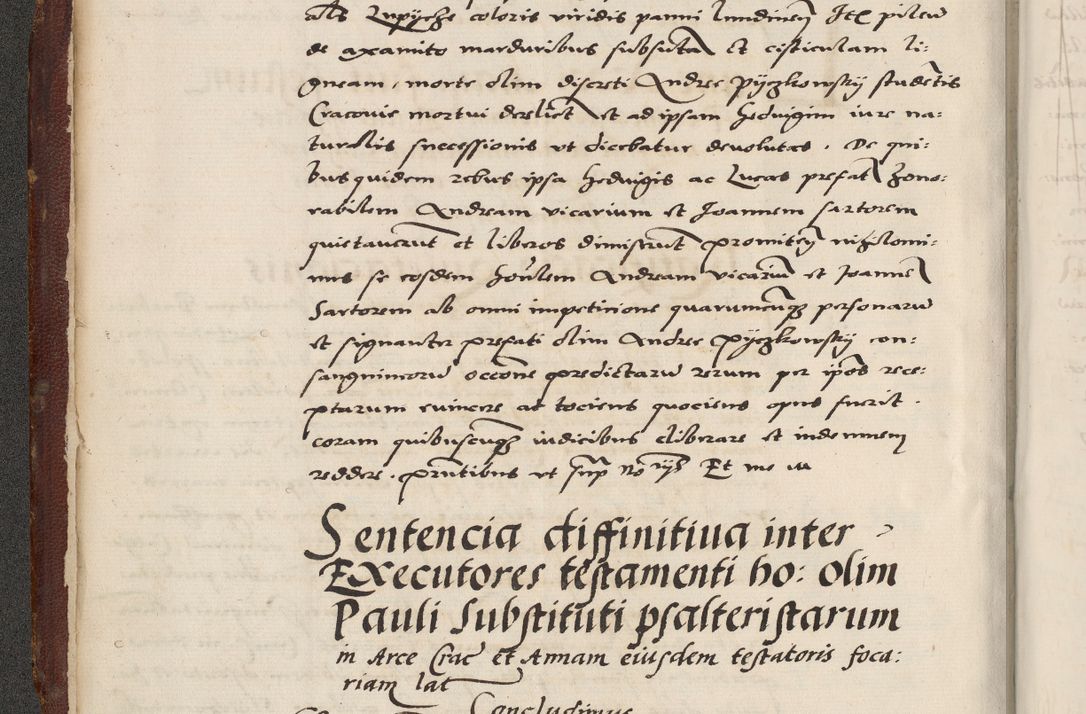 als Lupyche coloris viridis panni lundineñ Ite pileu
de axamito marduribus subsuta et cisticulam li:
gneam, morte olim discreti Andree Pyezkowsky studetis
Cracovie mortui derelict et ad ipsam Hedvigim iure na:
turalis successionis vt dicebatur devolutas . De qui:
bus quidem rebus ipsa Hedvigis ac Lucas prefat hono:
rabilem Andream vicarium et Joannem sartorem
quietaverut et liberos dimiserut promiteñ nihilomi:
nus se eosdem hoñlem Andream vicariu et Joanne
Sartorem ab omni impeticione quarumcuqz personaru
et signanter prefati olim Andree Pyezkowsky con:
sanguineoru occone predictaru rerum per ipos rece:
ptarum evincere ac tociens quociens opus fuerit .
coram quibuscuqz iudicibus eliberare et indemnem
reddere . pñtibus vt sup No ijs Et me
Sentencia diffinitiua inter
Executores testamenti ho: olim
Pauli Substituti psalteristarum
in Arce Crac et Annam eiusdem testatoris foca:
riam lat
Concludimus